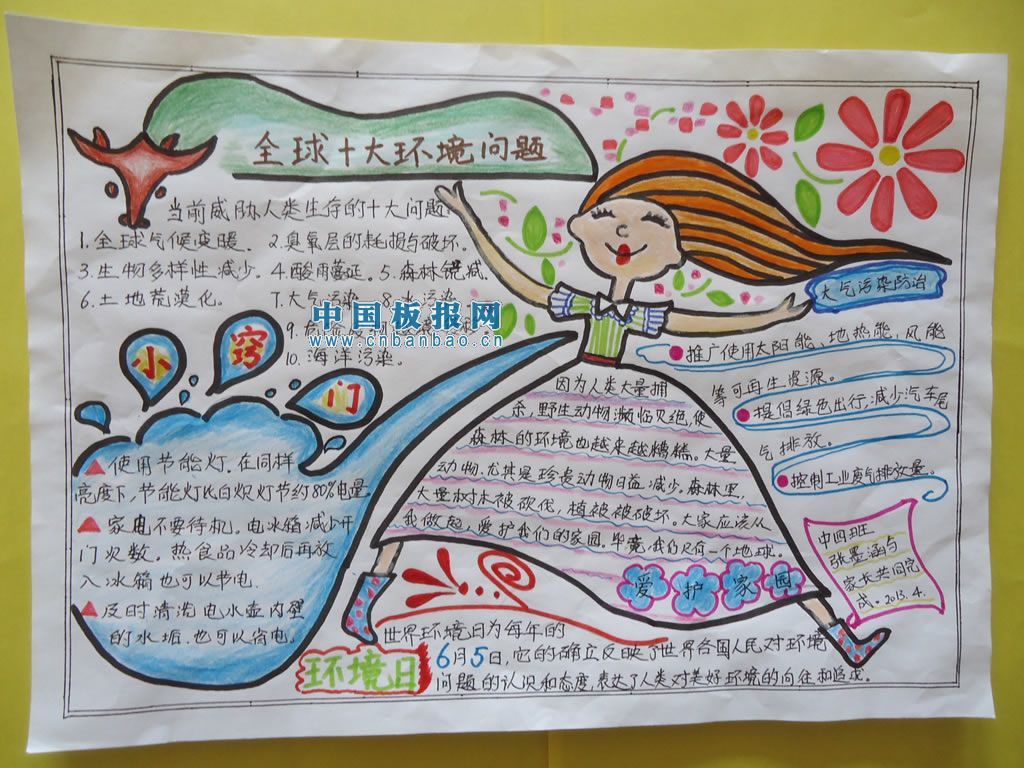 全球十大环境问题
当前威胁人类生存的十大问题
1.全球气候变暖. 2.臭氧层的耗损与破坏.
3.生物多样性减少. 4酸雨蔓延. 5.森林锐减.
6.土地荒漠化. 7.大气污染. 8.水污染
9.
10.海洋污染.
中国板报网
www.cnbanbao.cn
小窍门
使用节能灯.在同样
亮度下,节能灯比白炽灯节约80%电量
家电不要待机。电冰箱减少开
门次数。热食品冷却后再放
入冰箱也可以节电.
及时清洗电水壶内壁
的水垢.也可以省电.
因为人类大量捕
杀,野生动物濒临灭绝,使
森林的环境也越来越糟糕。大量
动物.尤其是珍贵动物日益减少。森林里,
大量树木被砍伐,植被被破坏。大家应该从
我做起,爱护我们的家园。毕竟,我们只有一个地球。
爱护家园
大气污染防治
推广使用太阳能、地热能,风能
等可再生资源。
提倡绿色出行,减少汽车尾
气排放。
控制工业废气排放量。
中四班
张墨涵与
家长共同完
成。2013.4.
环境日
世界环境日为每年的
6月5日,它的确立反映了世界各国人民对环境
问题的认识和态度,表达了人类对美好环境的向往和追求。